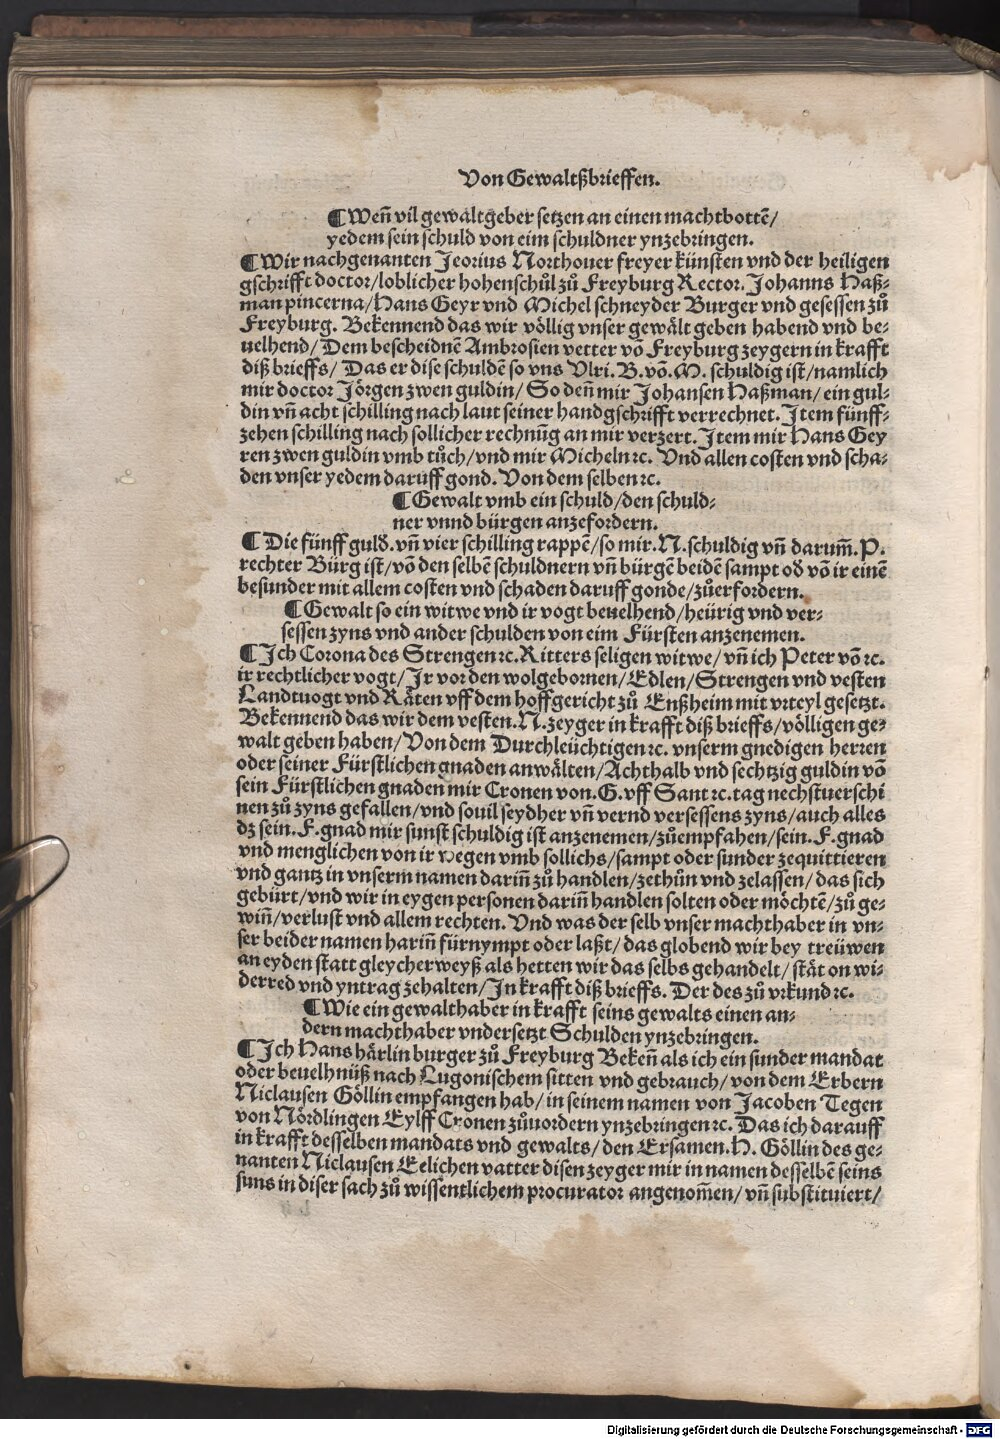 Von Gewaltßbrieffen.
¶Weñ vil gewaltgeber setzen an einen machtbottē/
yedem sein schuld von eim schuldner ynzebringen.
¶Wir nachgenanten Jeorius Northouer freyer künsten vnd der heiligen
gschrifft doctor/loblicher hohenschůl zů Freyburg Rector. Johanns Haß⸗
man pincerna/Hans Geyr vnd Michel schneyder Burger vnd gesessen zů
Freyburg. Bekennend das wir völlig vnser gewält geben habend vnd be⸗
uelhend/Dem bescheidnē Ambrosien vetter vō Freyburg zeygern in krafft
diß brieffs/ Das er dise schuldē so vns Vlri. B. vō. M. schuldig ist/namlich
mir doctor Jörgen zwen guldin/ So deñ mir Johansen Haßman/ein gul⸗
din vñ acht schilling nach laut seiner handgschrifft verrechnet. Item fünff⸗
zehen schilling nach sollicher rechnūg an mir verzert. Item mir Hans Gey
ren zwen guldin vmb tůch/vnd mir Micheln ⁊c. Vnd allen costen vnd scha⸗
den vnser yedem daruff gond. Von dem selben ⁊c.
¶Gewalt vmb ein schuld/den schuld⸗
ner vnnd bürgen anzefordern.
¶Die fünff guld̄. vñ vier schilling rappē/so mir. N. schuldig vñ darum̄. P.
rechter Bürg ist/vō den selbē schuldnern vñ bürgē beidē sampt od̄ vō ir einē
besunder mit allem costen vnd schaden daruff gonde/zůerfordern.
¶Gewalt so ein witwe vnd ir vogt beuelhend/heürig vnd ver⸗
sessen zyns vnd ander schulden von eim Fürsten anzenemen.
¶Ich Corona des Strengen ⁊c. Ritters seligen witwe/vñ ich Peter vō ⁊c.
ir rechtlicher vogt/Ir vor den wolgebornen/Edlen/Strengen vnd vesten
Landtuogt vnd Räten vff dem hoffgericht zů Enßheim mit vrteyl gesetzt.
Bekennend das wir dem vesten. N. zeyger in krafft diß brieffs/völligen ge⸗
walt geben haben/Von dem Durchleüchtigen ⁊c. vnserm gnedigen herren
oder seiner Fürstlichen gnaden anwälten/Achthalb vnd sechtzig guldin vō
sein Fürstlichen gnaden mir Cronen von. G. vff Sant ⁊c. tag nechstuerschi
nen zů zyns gefallen/vnd souil seydher vñ vernd versessens zyns/auch alles
dz sein. F. gnad mir sunst schuldig ist anzenemen/zůempfahen/sein. F. gnad
vnd menglichen von ir wegen vmb sollichs/sampt oder sunder zequittieren
vnd gantz in vnserm namen dariñ zů handlen/zethůn vnd zelassen/das sich
gebürt/vnd wir in eygen personen dariñ handlen solten oder möchtē/zů ge⸗
wiñ/verlust vnd allem rechten. Vnd was der selb vnser machthaber in vn⸗
ser beider namen hariñ fürnympt oder laßt/das globend wir bey treüwen
an eyden statt gleycherweyß als hetten wir das selbs gehandelt/stät on wi⸗
derred vnd yntrag zehalten/In krafft diß brieffs. Der des zů vrkund ⁊c.
¶Wie ein gewalthaber in krafft seins gewalts einen an⸗
dern machthaber vndersetzt Schulden ynzebringen.
¶Ich Hans härlin burger zů Freyburg Bekeñ als ich ein sunder mandat
oder beuelhnüß nach Lugonischem sitten vnd gebrauch/von dem Erbern
Niclausen Göllin empfangen hab/in seinem namen von Jacoben Tegen
von Nördlingen Eylff Cronen zůuordern ynzebringen ⁊c. Das ich darauff
in krafft desselben mandats vnd gewalts/den Ersamen. H. Göllin des ge⸗
nanten Niclausen Eelichen vatter disen zeyger mir in namen desselbē seins
suns in diser sach zů wissentlichem procurator angenom̄en/vñ substituiert/
Digitalisierung gefördert durch die Deutsche Forschungsgemeinschaft - DFG